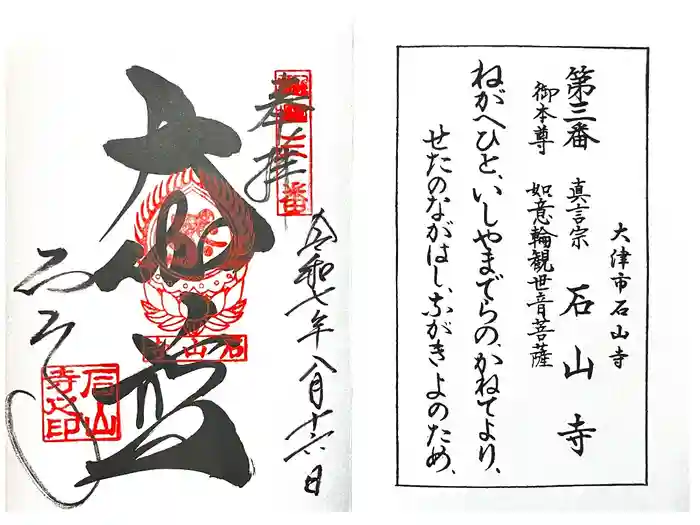 大津市石山寺
第三番 真言宗 石山寺
御本尊 如意輪観世音菩薩
ねがへひと、いしやまでらの、かねてより、
せたのながはし、ながきよのため、
令和七年八月十六日
奉拝
石山寺
石山寺之印